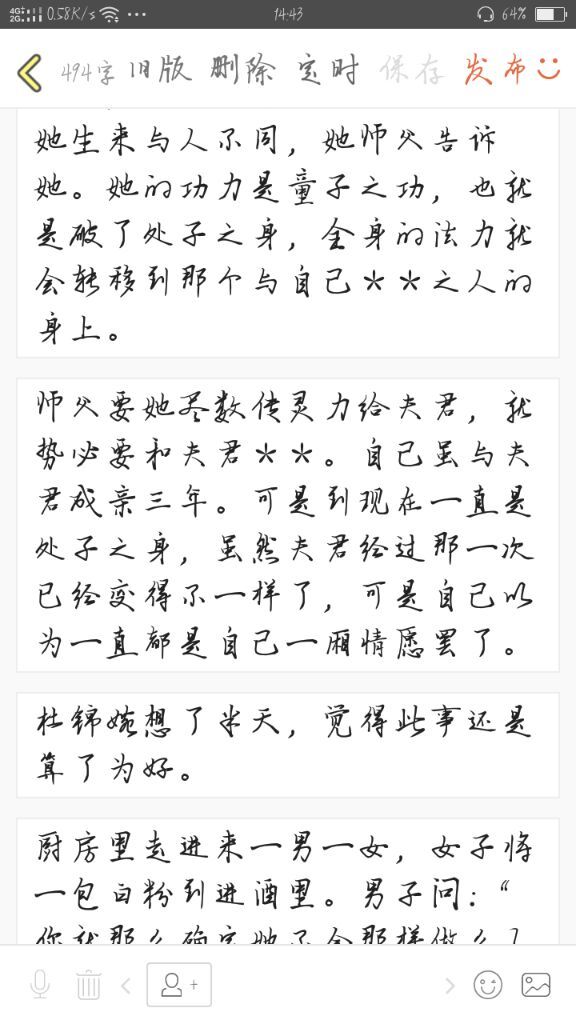 4G 2G 0.58K/s ... 14:43 64%
494字 旧版 删除 定时 保存 发布
她生来与人不同，她师父告诉
她。她的功力是童子之功，也就
是破了处子之身，全身的法力就
会转移到那个与自己＊＊之人的
身上。
师父要她尽数传灵力给夫君，就
势必要和夫君＊＊。自己虽与夫
君成亲三年。可是到现在一直是
处子之身，虽然夫君经过那一次
已经变得不一样了，可是自己以
为一直都是自己一厢情愿罢了。
杜锦婉想了半天，觉得此事还是
算了为好。
厨房里走进来一男一女，女子将
一包白粉到进酒里。男子问：“
你就那么确定她不会那样做么？